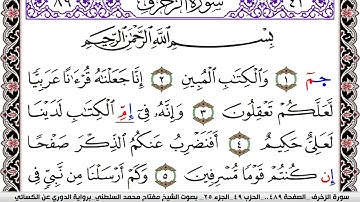 ٨٩ سُورَةُ الزُّخْرُفِ ٤٣
بِسْمِ اللَّهِ الرَّحْمَٰنِ الرَّحِيمِ
حمٓ ١ وَالْكِتَابِ الْمُبِينِ ٢ إِنَّا جَعَلْنَاهُ قُرْءَٰنًا عَرَبِيًّا
لَعَلَّكُمْ تَعْقِلُونَ ٣ وَإِنَّهُ فِي إِمِّ الْكِتَابِ لَدَيْنَا
لَعَلِيٌّ حَكِيمٌ ٤ أَفَنَضْرِبُ عَنكُمُ الذِّكْرَ صَفْحًا
إِن كُنتُمْ قَوْمًا مُّسْرِفِينَ ٥ وَكَمْ أَرْسَلْنَا مِن نَّبِيٍّ فِي
سورة الزخرف .. الصفحة ٤٨٩.. الحزب ٤٩ .الجزء ٢٥ .. بصوت الشيخ مفتاح محمد السلطني برواية الدوري عن الكسائي